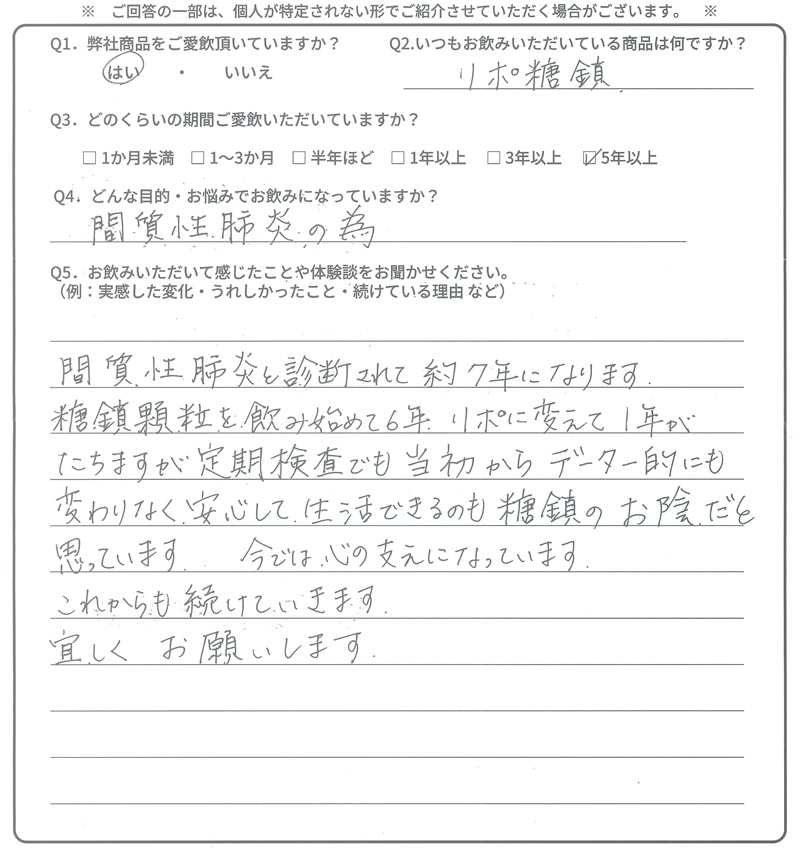 ※ ご回答の一部は、個人が特定されない形でご紹介させていただく場合がございます。 ※
Q1．弊社商品をご愛飲頂いていますか？
はい ・ いいえ
Q2.いつもお飲みいただいている商品は何ですか？
リポ糖鎖
Q3．どのくらいの期間ご愛飲いただいていますか？
□ 1か月未満 □ 1〜3か月 □ 半年ほど □ 1年以上 □ 3年以上 ☑ 5年以上
Q4．どんな目的・お悩みでお飲みになっていますか？
間質性肺炎の為
Q5．お飲みいただいて感じたことや体験談をお聞かせください。
（例：実感した変化・うれしかったこと・続けている理由 など）
間質性肺炎と診断されて 約7年になります.
糖鎖顆粒を飲み始めて6年 リポに変えて 1年が
たちますが 定期検査でも 当初から データー的にも
変わりなく 安心して 生活できるのも 糖鎖の お陰だと
思っています. 今では 心の支えになっています.
これからも 続けていきます.
宜しく お願いします.